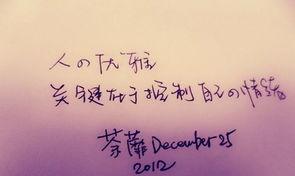 人の优雅
关键在于控制自己の情绪
荼蘼December 25
2012